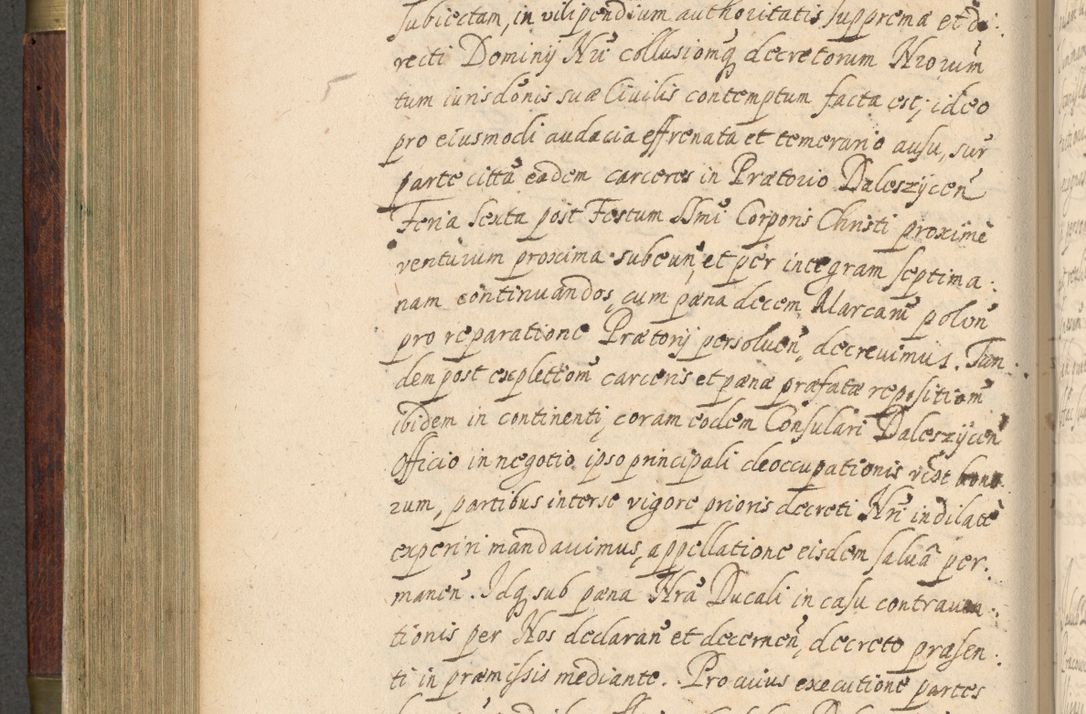 subiectam, in vilipendium authoritatis supprema et di:
recti Dominij Nrī collusionq̃ decretorum Nrorum
tum iurisdōnis suæ Civilis contemptum facta est; ideo
pro eiusmodi audacia effrenata et temerario ausu, sur
parte cittā eadem carceres in Prætorio Daleszycen̄
Feria Sexta post Festum SSmi Corporis Christi proximè
venturum proxima subeun̄, et per integram septima:
nam continuandos, cum pæna decem Marcarū polon̄
pro reparatione Prætorij persoluen̄, decrevimus. Tan:
dem post explettom̄ carceris et pænæ præfatæ repositiom̄
ibidem in continenti, coram eodem Consulari Daleszycen
Officio in negotio ipso principali deoccupationis
rum, partibus interse vigore prioris decreti Nrī indilatè
experiri mandavimus, appellatione eisdem salvā per:
manen̄. Idq̃ sub pæna Nrā Ducali in casu contraven:
tionis per Nos declaran̄ et decernen̄, decreto præsen:
ti in præmissis mediante. Pro cuius executione partes